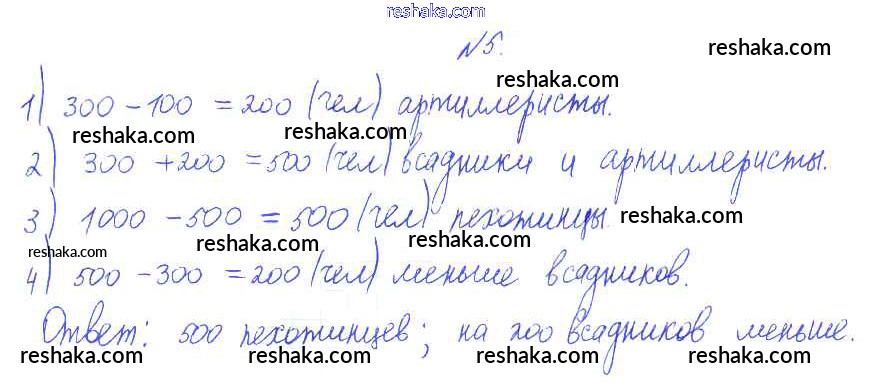 reshaka.com
№5.
reshaka.com
reshaka.com
1) 300 - 100 = 200 (чел) артиллеристы.
reshaka.com reshaka.com
2) 300 + 200 = 500 (чел) всадники и артиллеристы.
3) 1000 - 500 = 500 (чел) пехотинцы. reshaka.com
reshaka.com reshaka.com
reshaka.com
4) 500 - 300 = 200 (чел) меньше всадников.
Ответ: 500 пехотинцев; на 200 всадников меньше.
reshaka.com reshaka.com reshaka.com reshaka.com